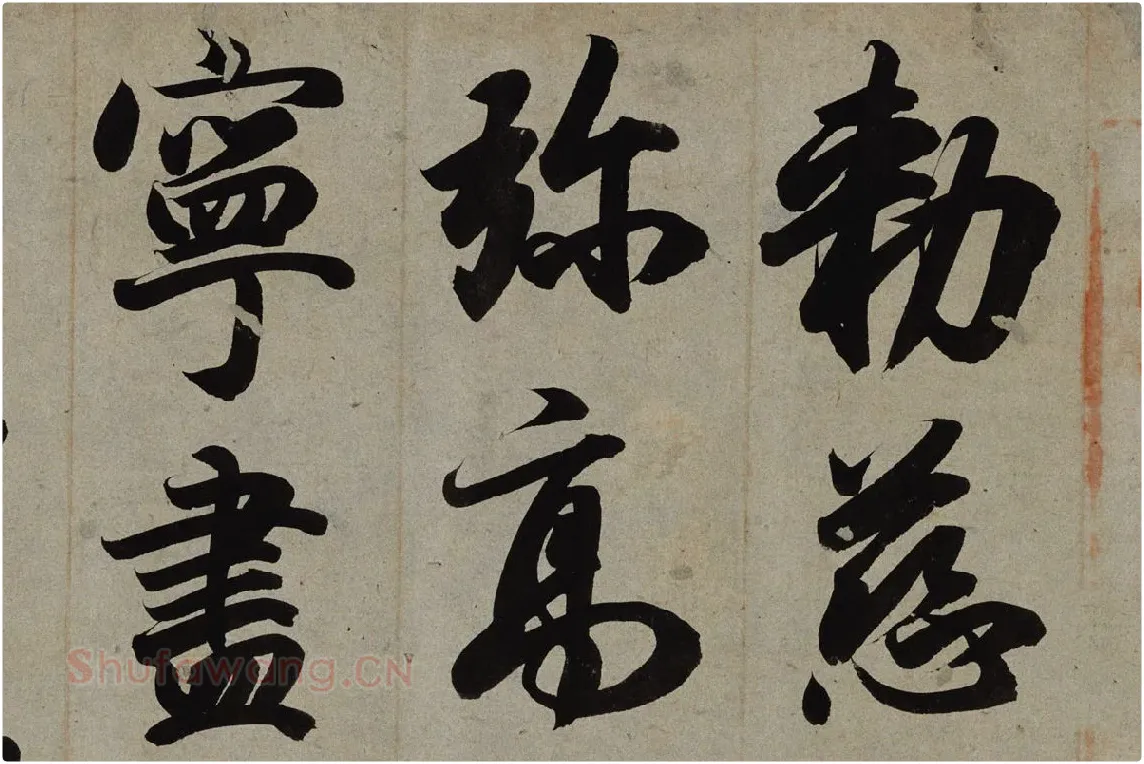 勅慈
弥高
寧盡
Shufawang.CN